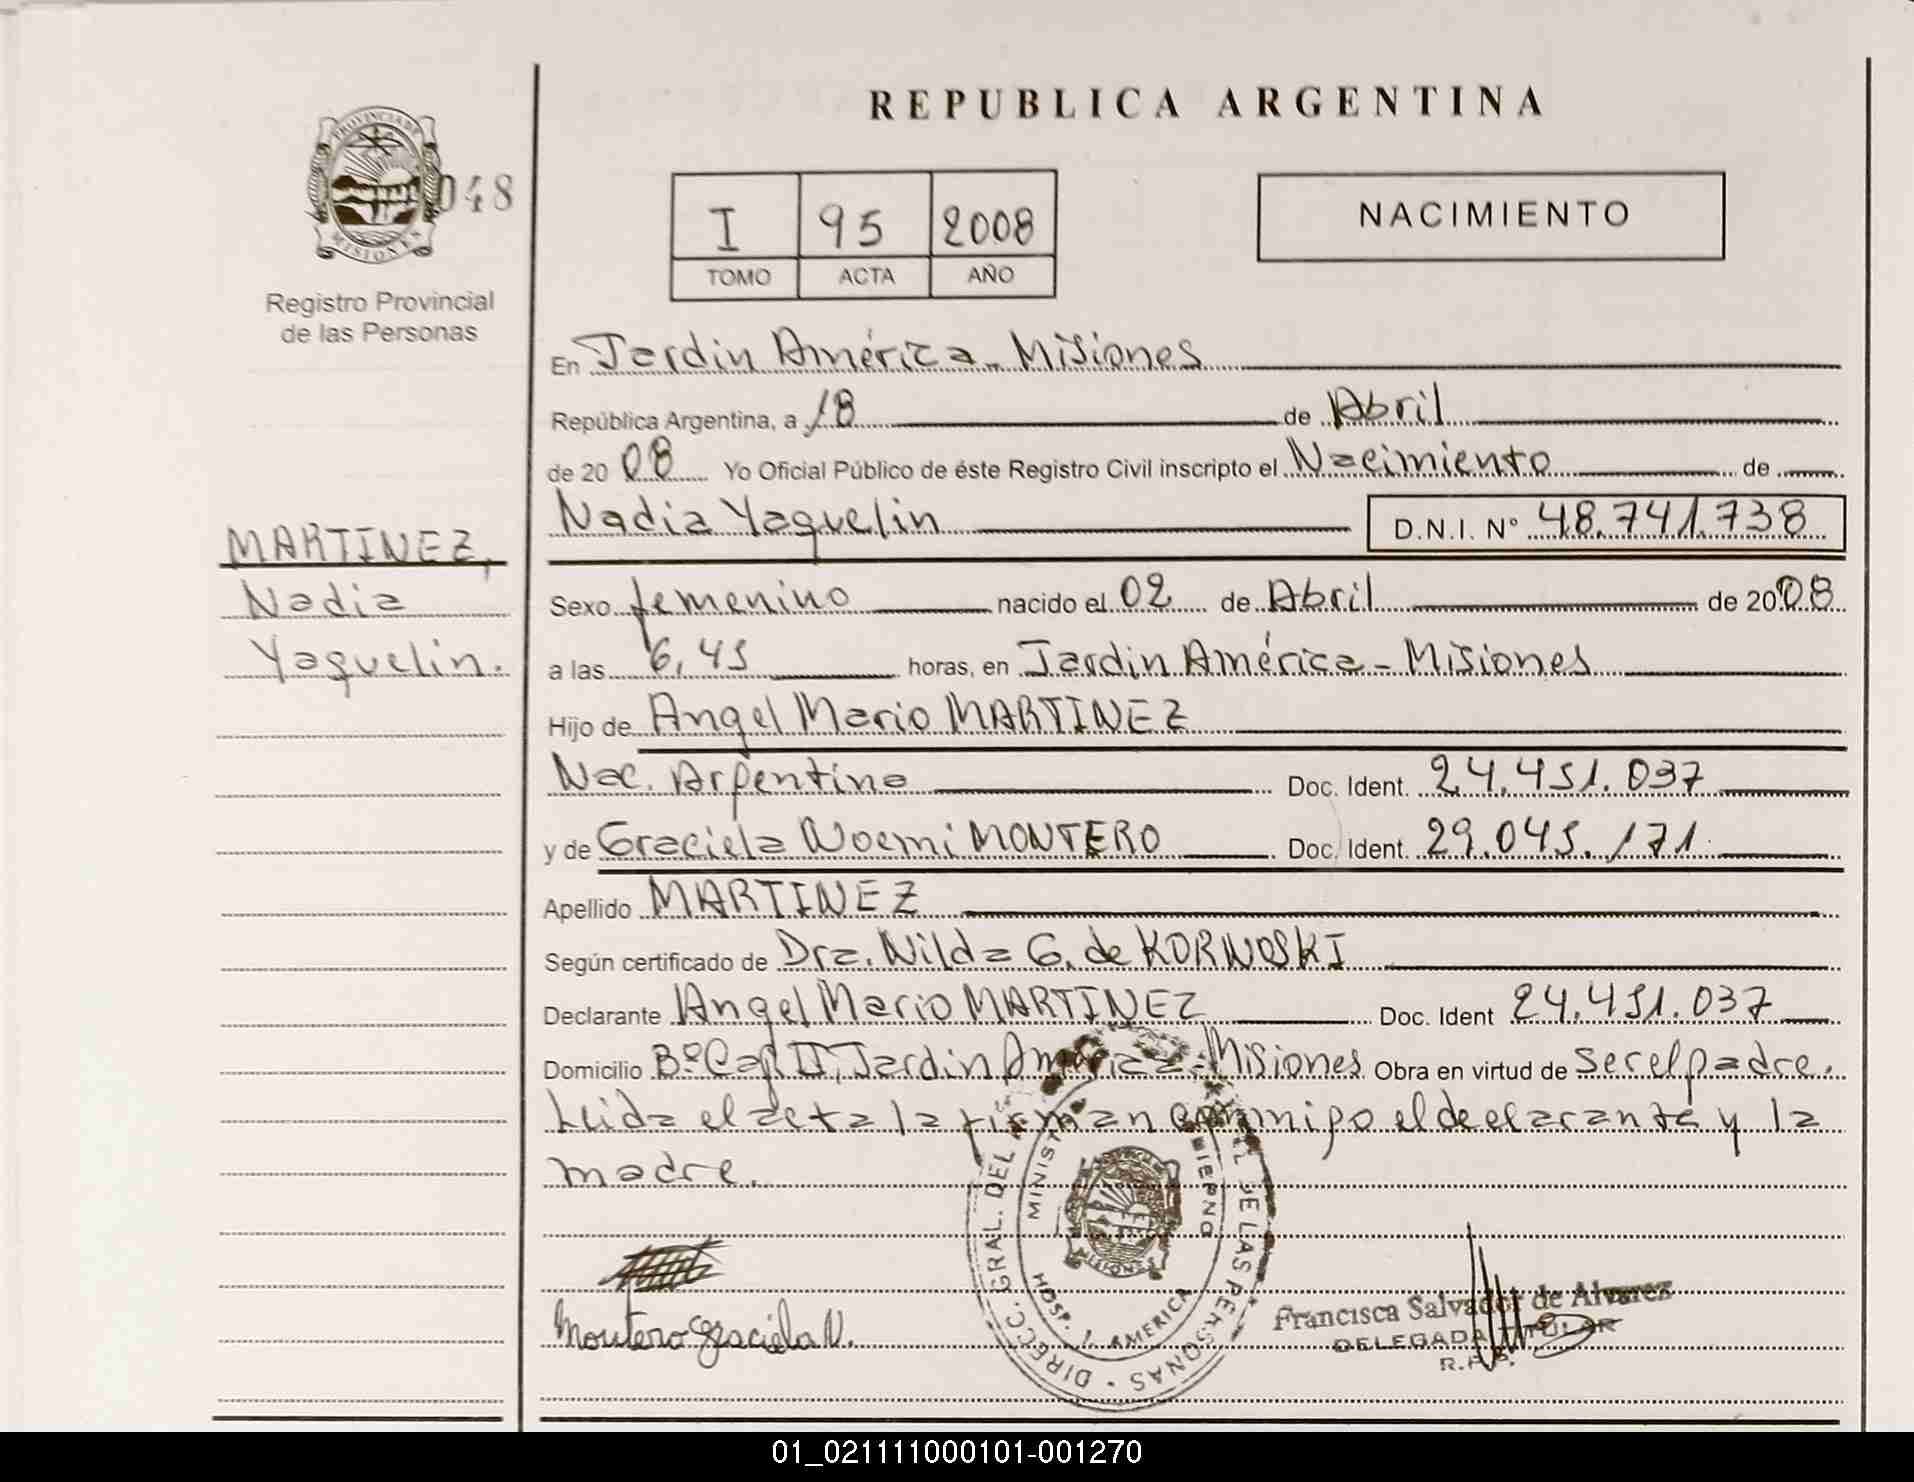 REPUBLICA ARGENTINA
PROVINCIA DE MISIONES
048
Registro Provincial
de las Personas
I 95 2008
TOMO ACTA AÑO
NACIMIENTO
En Jardin América - Misiones
República Argentina, a 18 de Abril
de 2008 Yo Oficial Público de éste Registro Civil inscripto el Nacimiento de
Nadia Yaquelin D.N.I. Nº 48.741.738
MARTINEZ,
Nadia
Yaquelin.
Sexo femenino nacido el 02 de Abril de 2008
a las 6,45 horas, en Jardin América - Misiones
Hijo de Angel Mario MARTINEZ
Nac. Argentina Doc. Ident. 24.451.037
y de Graciela Noemi MONTERO Doc. Ident. 29.045.171
Apellido MARTINEZ
Según certificado de Dra. Nilda G. de KORNOSKI
Declarante Angel Mario MARTINEZ Doc. Ident 24.451.037
Domicilio Bº Cap II, Jardin América - Misiones Obra en virtud de ser el padre.
Leida el acta la firman conmigo el declarante y la
madre.
Montero Graciela N.
DIRECC. GRAL. DEL DE LAS PERSONAS
HOSP. J. AMERICA
MISIONES
Francisca Salvador de Alvarez
DELEGADA TITULAR
R.P.P.
01_021111000101-001270